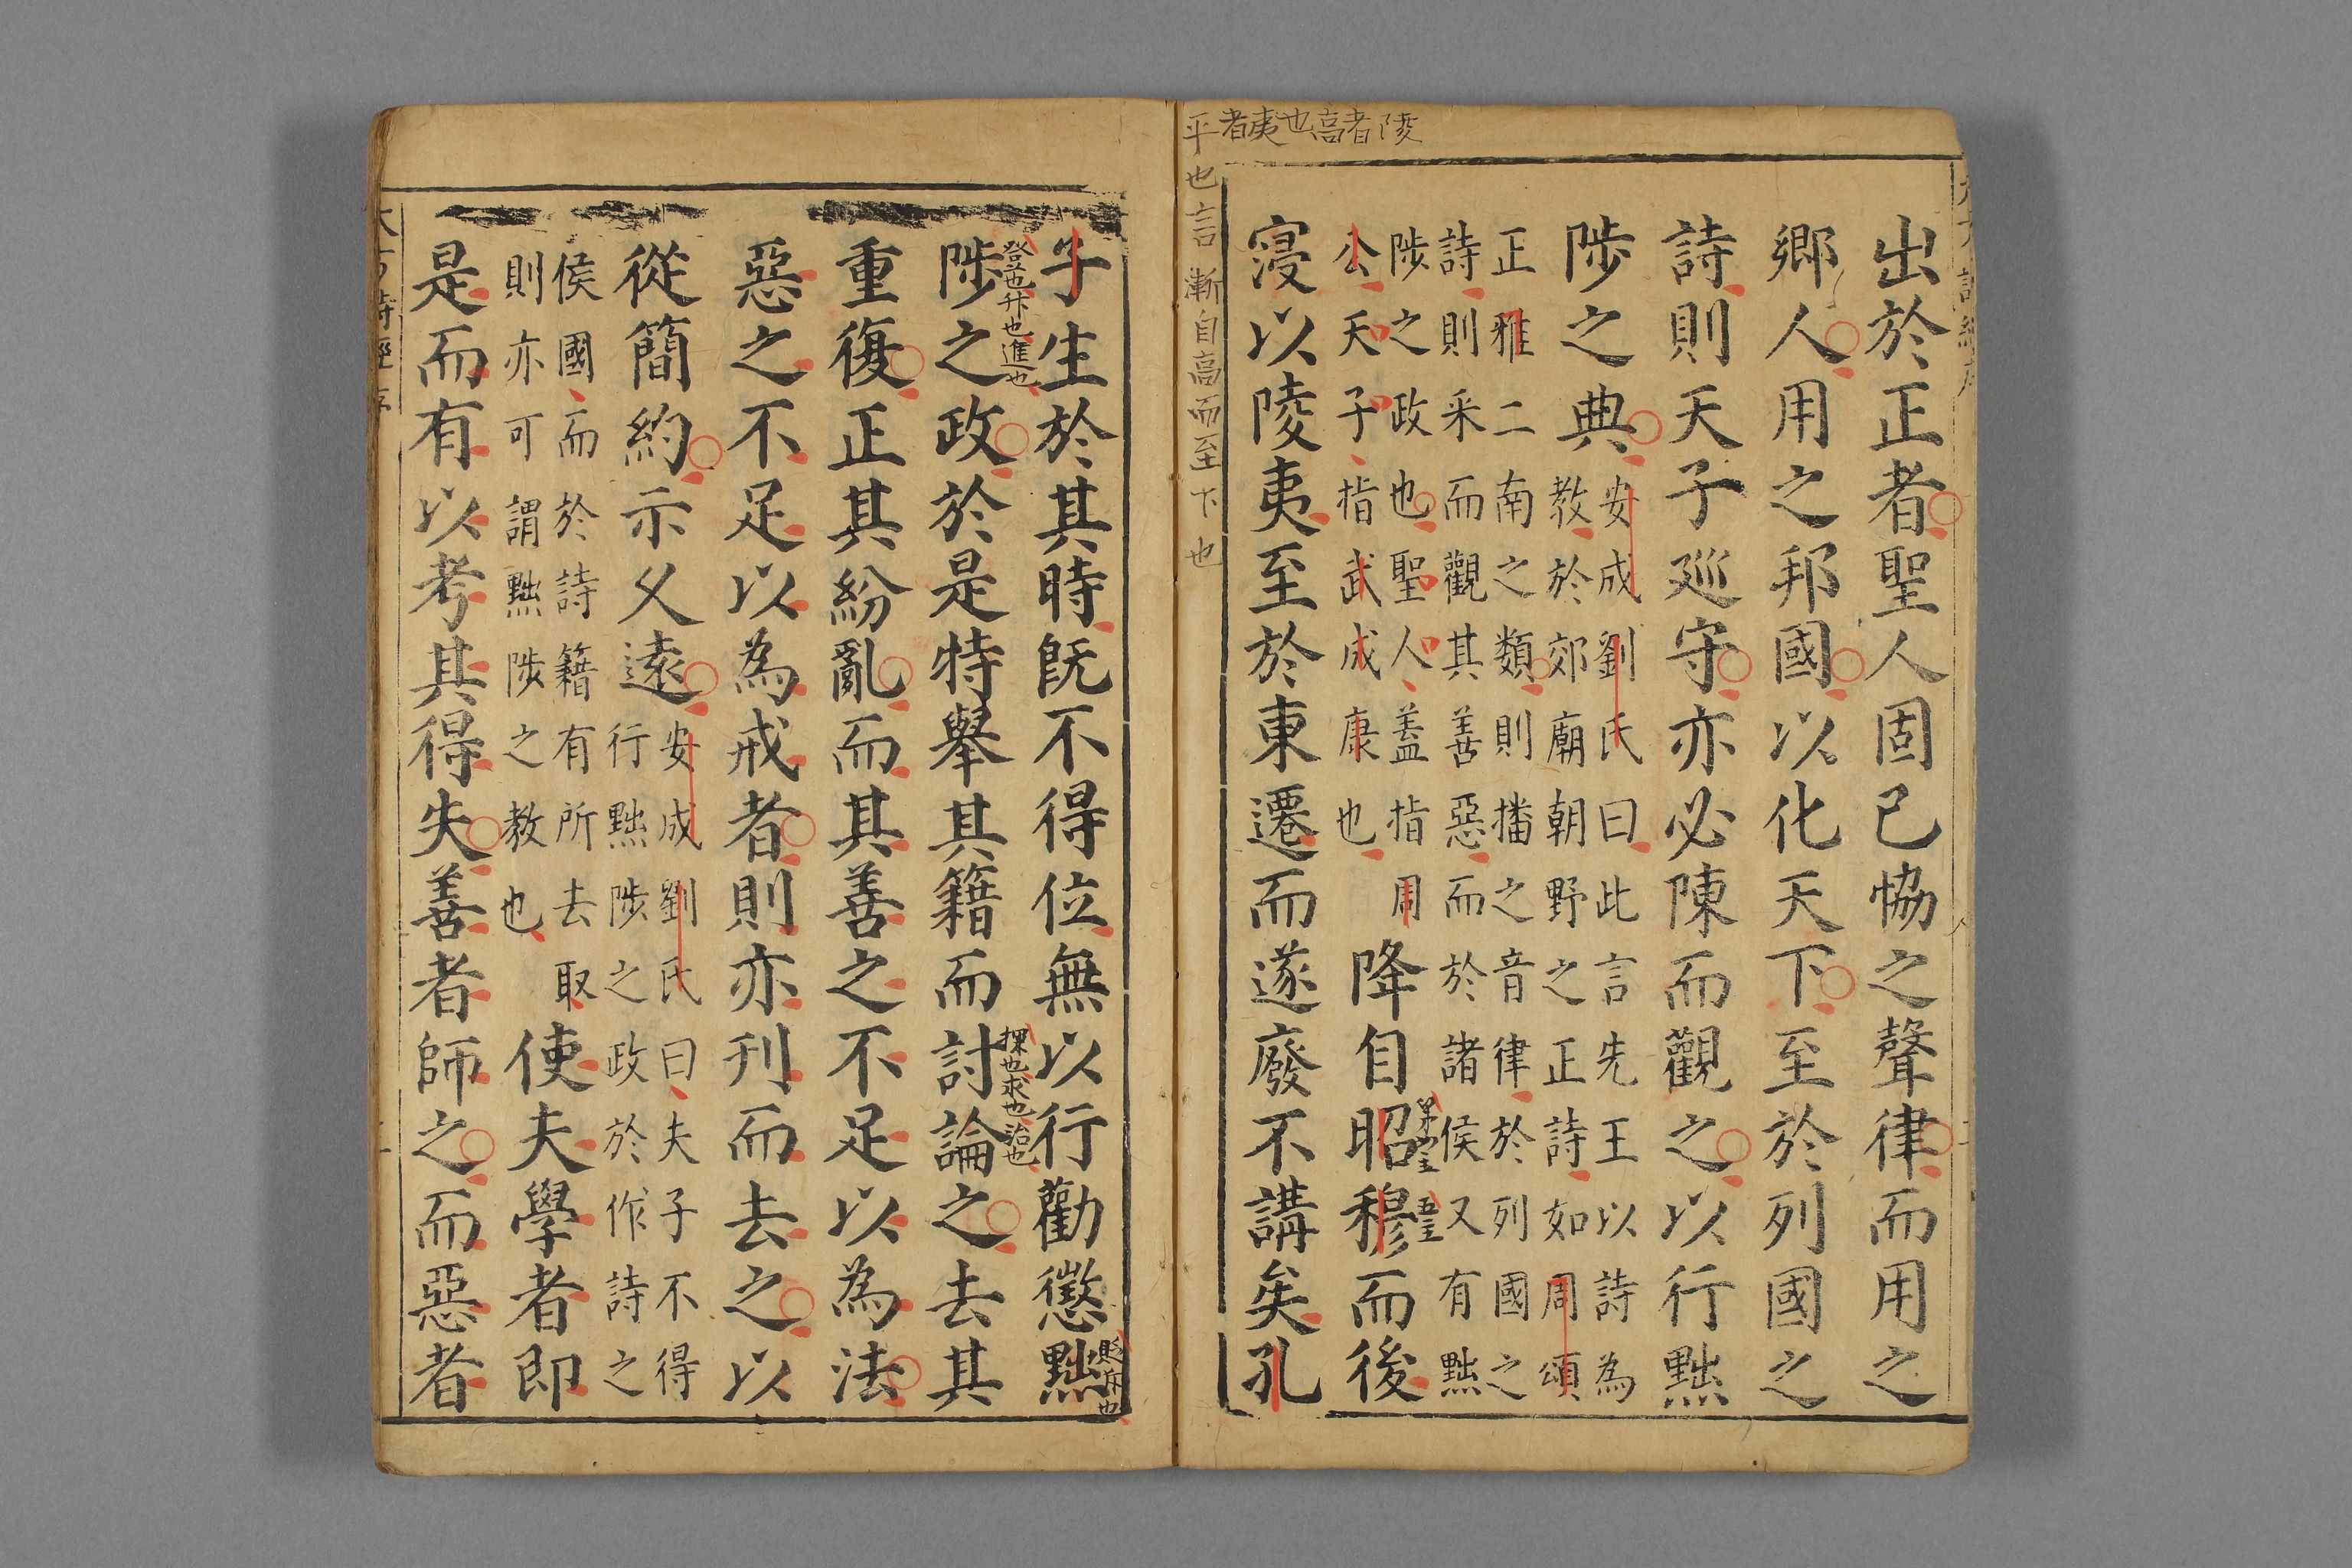 陵者高也夷者平也言漸自高而至下也
出於正者聖人固已恊之聲律而用之
鄉人用之邦國以化天下至於列國之
詩則天子巡守亦必陳而觀之以行黜
陟之典
安成劉氏曰此言先王以詩為
教於郊廟朝野之正詩如周頌
正雅二南之類則播之音律於列國之
詩則采而觀其善惡而於諸侯又有黜
陟之政也聖人蓋指周
公天子指武成康也
降自昭穆而後
五王
寖以陵夷至於東遷而遂廢不講矣孔
子生於其時旣不得位無以行勸懲黜
貶斥也
登也升也進也
陟之政於是特舉其籍而討論之去其
求也治也
重復正其紛亂而其善之不足以為法
惡之不足以為戒者則亦刋而去之以
從簡約示久遠
安成劉氏曰夫子不得
行黜陟之政於作詩之
侯國而於詩籍有所去取
則亦可謂黜陟之教也
使夫學者即
是而有以考其得失善者師之而惡者